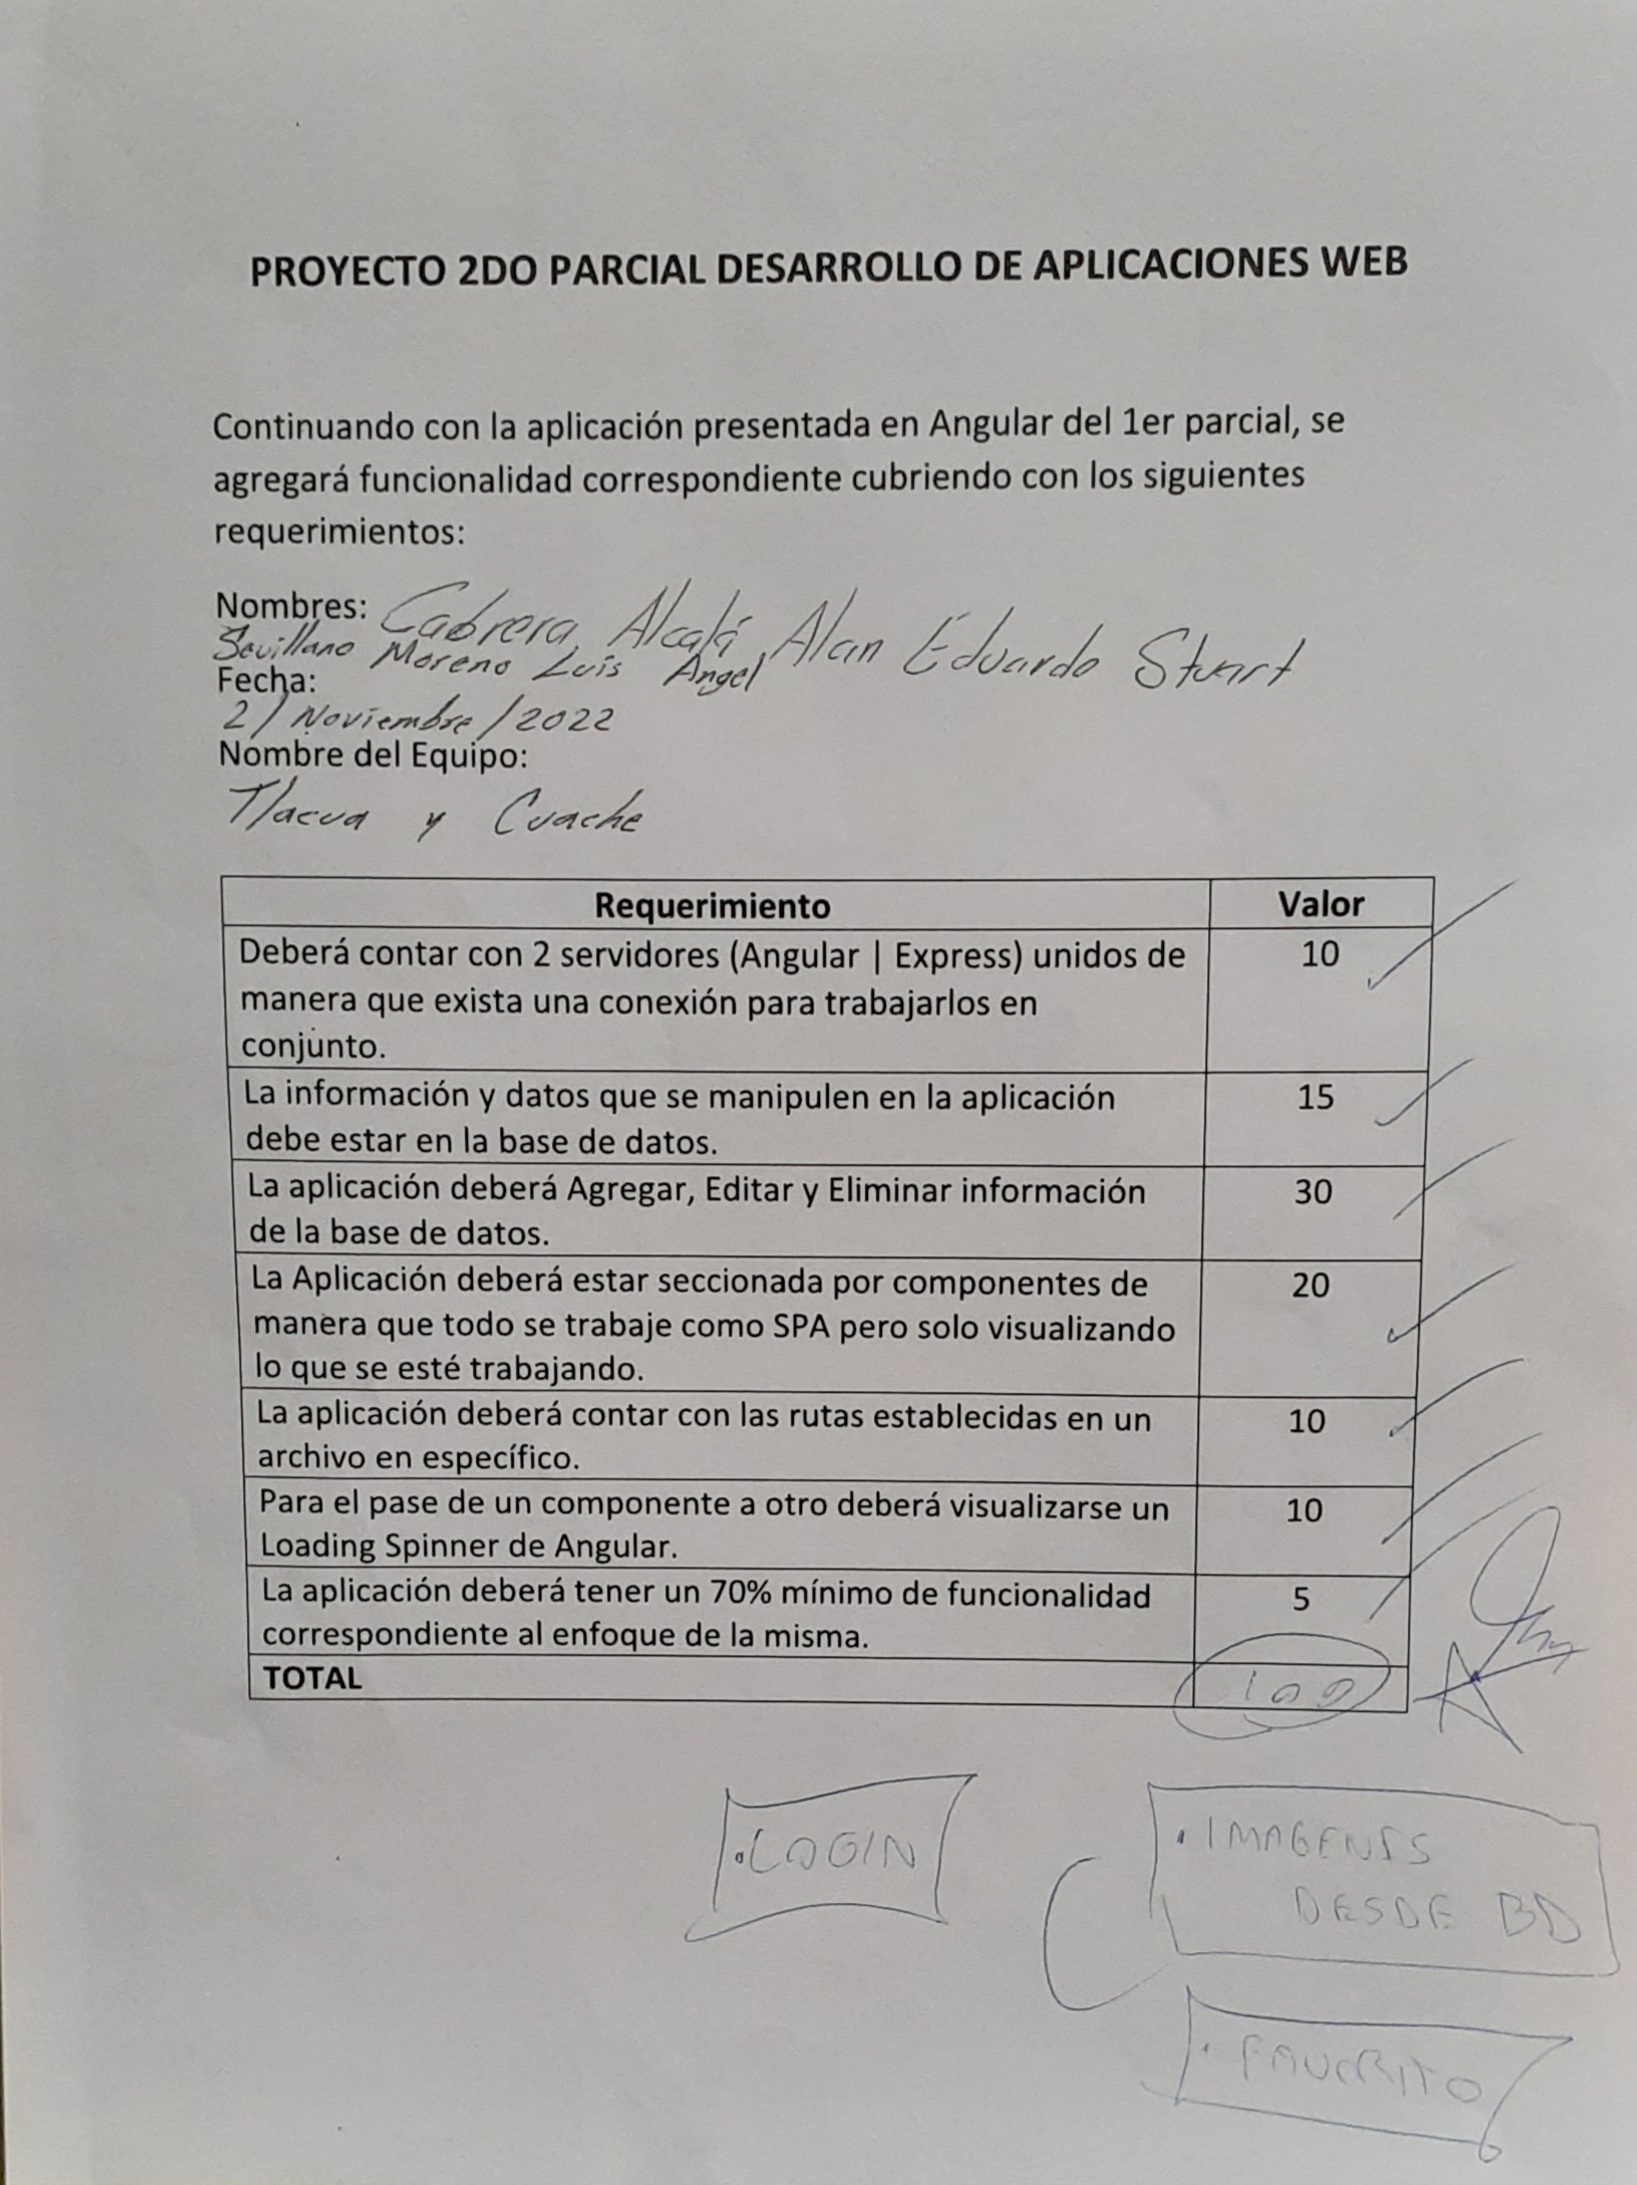 PROYECTO 2DO PARCIAL DESARROLLO DE APLICACIONES WEB
Continuando con la aplicación presentada en Angular del 1er parcial, se
agregará funcionalidad correspondiente cubriendo con los siguientes
requerimientos:
Nombres: Cabrera Alcalá Alan Eduardo Stuart
Sevillano Moreno Luis Angel
Fecha:
2/Noviembre/2022
Nombre del Equipo:
Tlacua y Cuache
Requerimiento Valor
Deberá contar con 2 servidores (Angular | Express) unidos de 10
manera que exista una conexión para trabajarlos en
conjunto.
La información y datos que se manipulen en la aplicación 15
debe estar en la base de datos.
La aplicación deberá Agregar, Editar y Eliminar información 30
de la base de datos.
La Aplicación deberá estar seccionada por componentes de 20
manera que todo se trabaje como SPA pero solo visualizando
lo que se esté trabajando.
La aplicación deberá contar con las rutas establecidas en un 10
archivo en específico.
Para el pase de un componente a otro deberá visualizarse un 10
Loading Spinner de Angular.
La aplicación deberá tener un 70% mínimo de funcionalidad 5
correspondiente al enfoque de la misma.
TOTAL 100
• LOGIN
• IMAGENES
DESDE BD
• FAVORITO